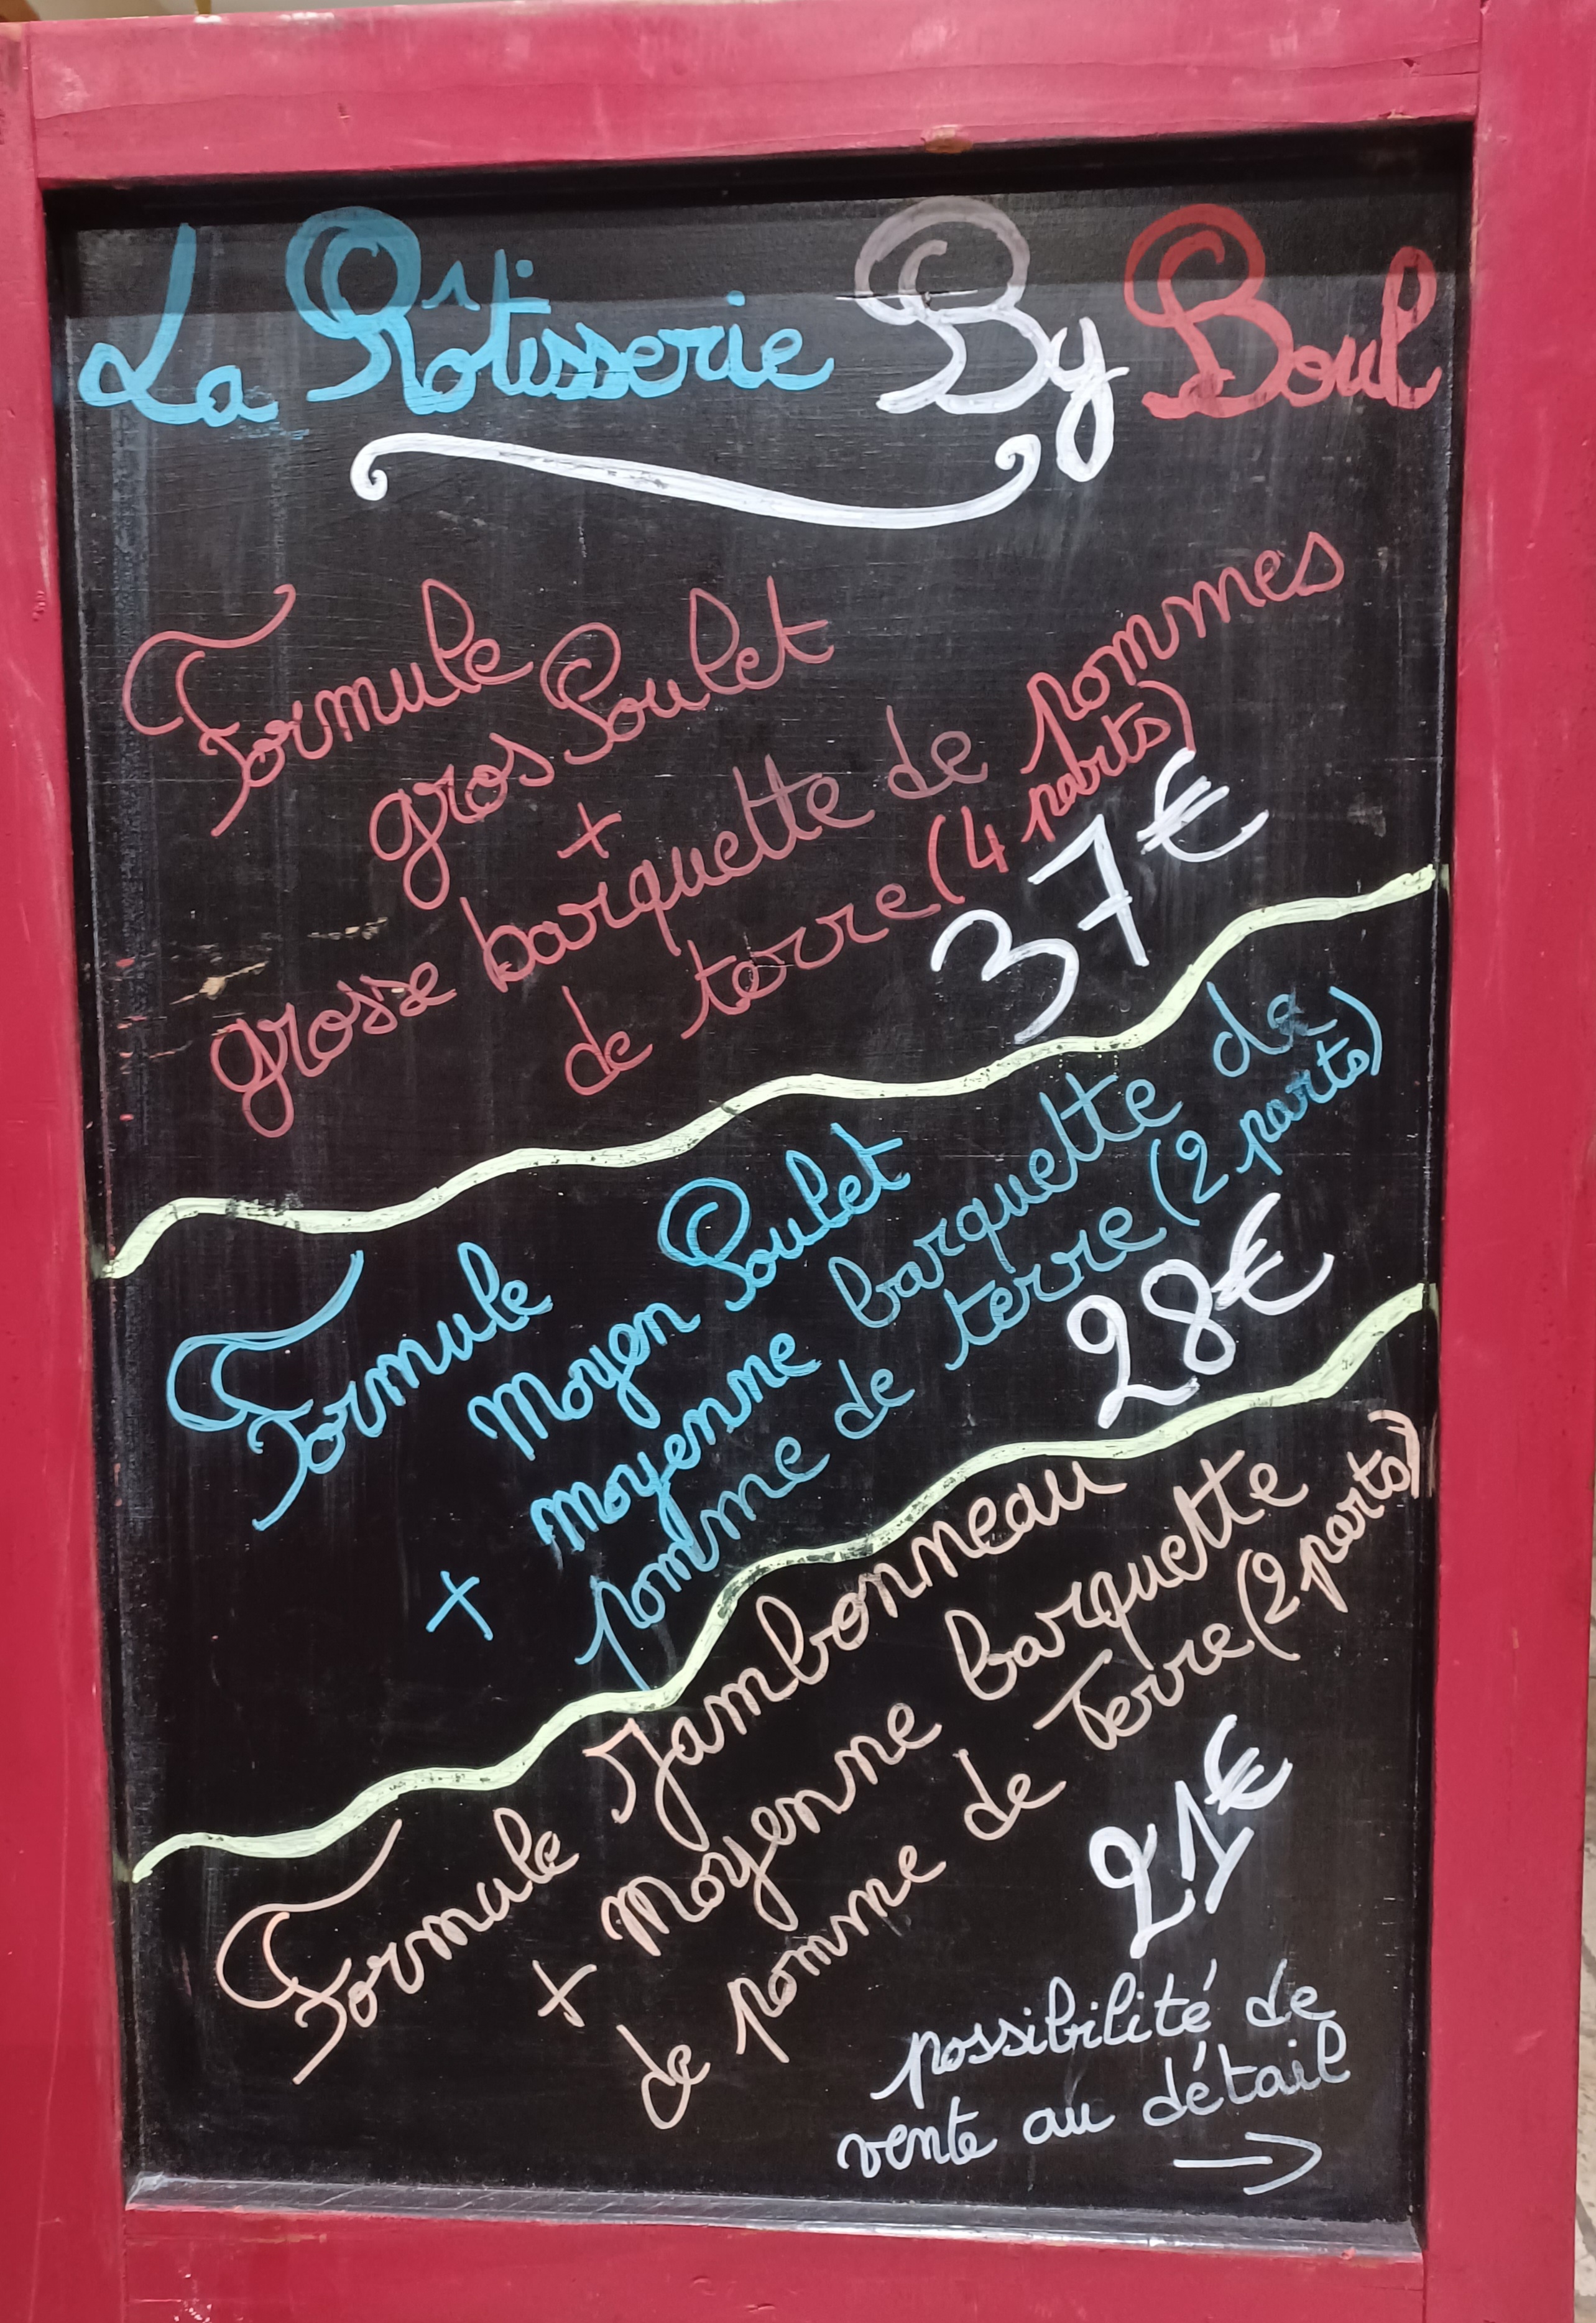 La Rôtisserie By Boul
Formule
gros Poulet
+
grosse barquette de pommes
de terre (4 parts)
37€
Formule
Moyen Poulet
+ moyenne barquette de
pomme de terre (2 parts)
28€
Formule Jambonneau
+ Moyenne barquette
de pomme de Terre (2 parts)
21€
possibilité de
vente au détail
→